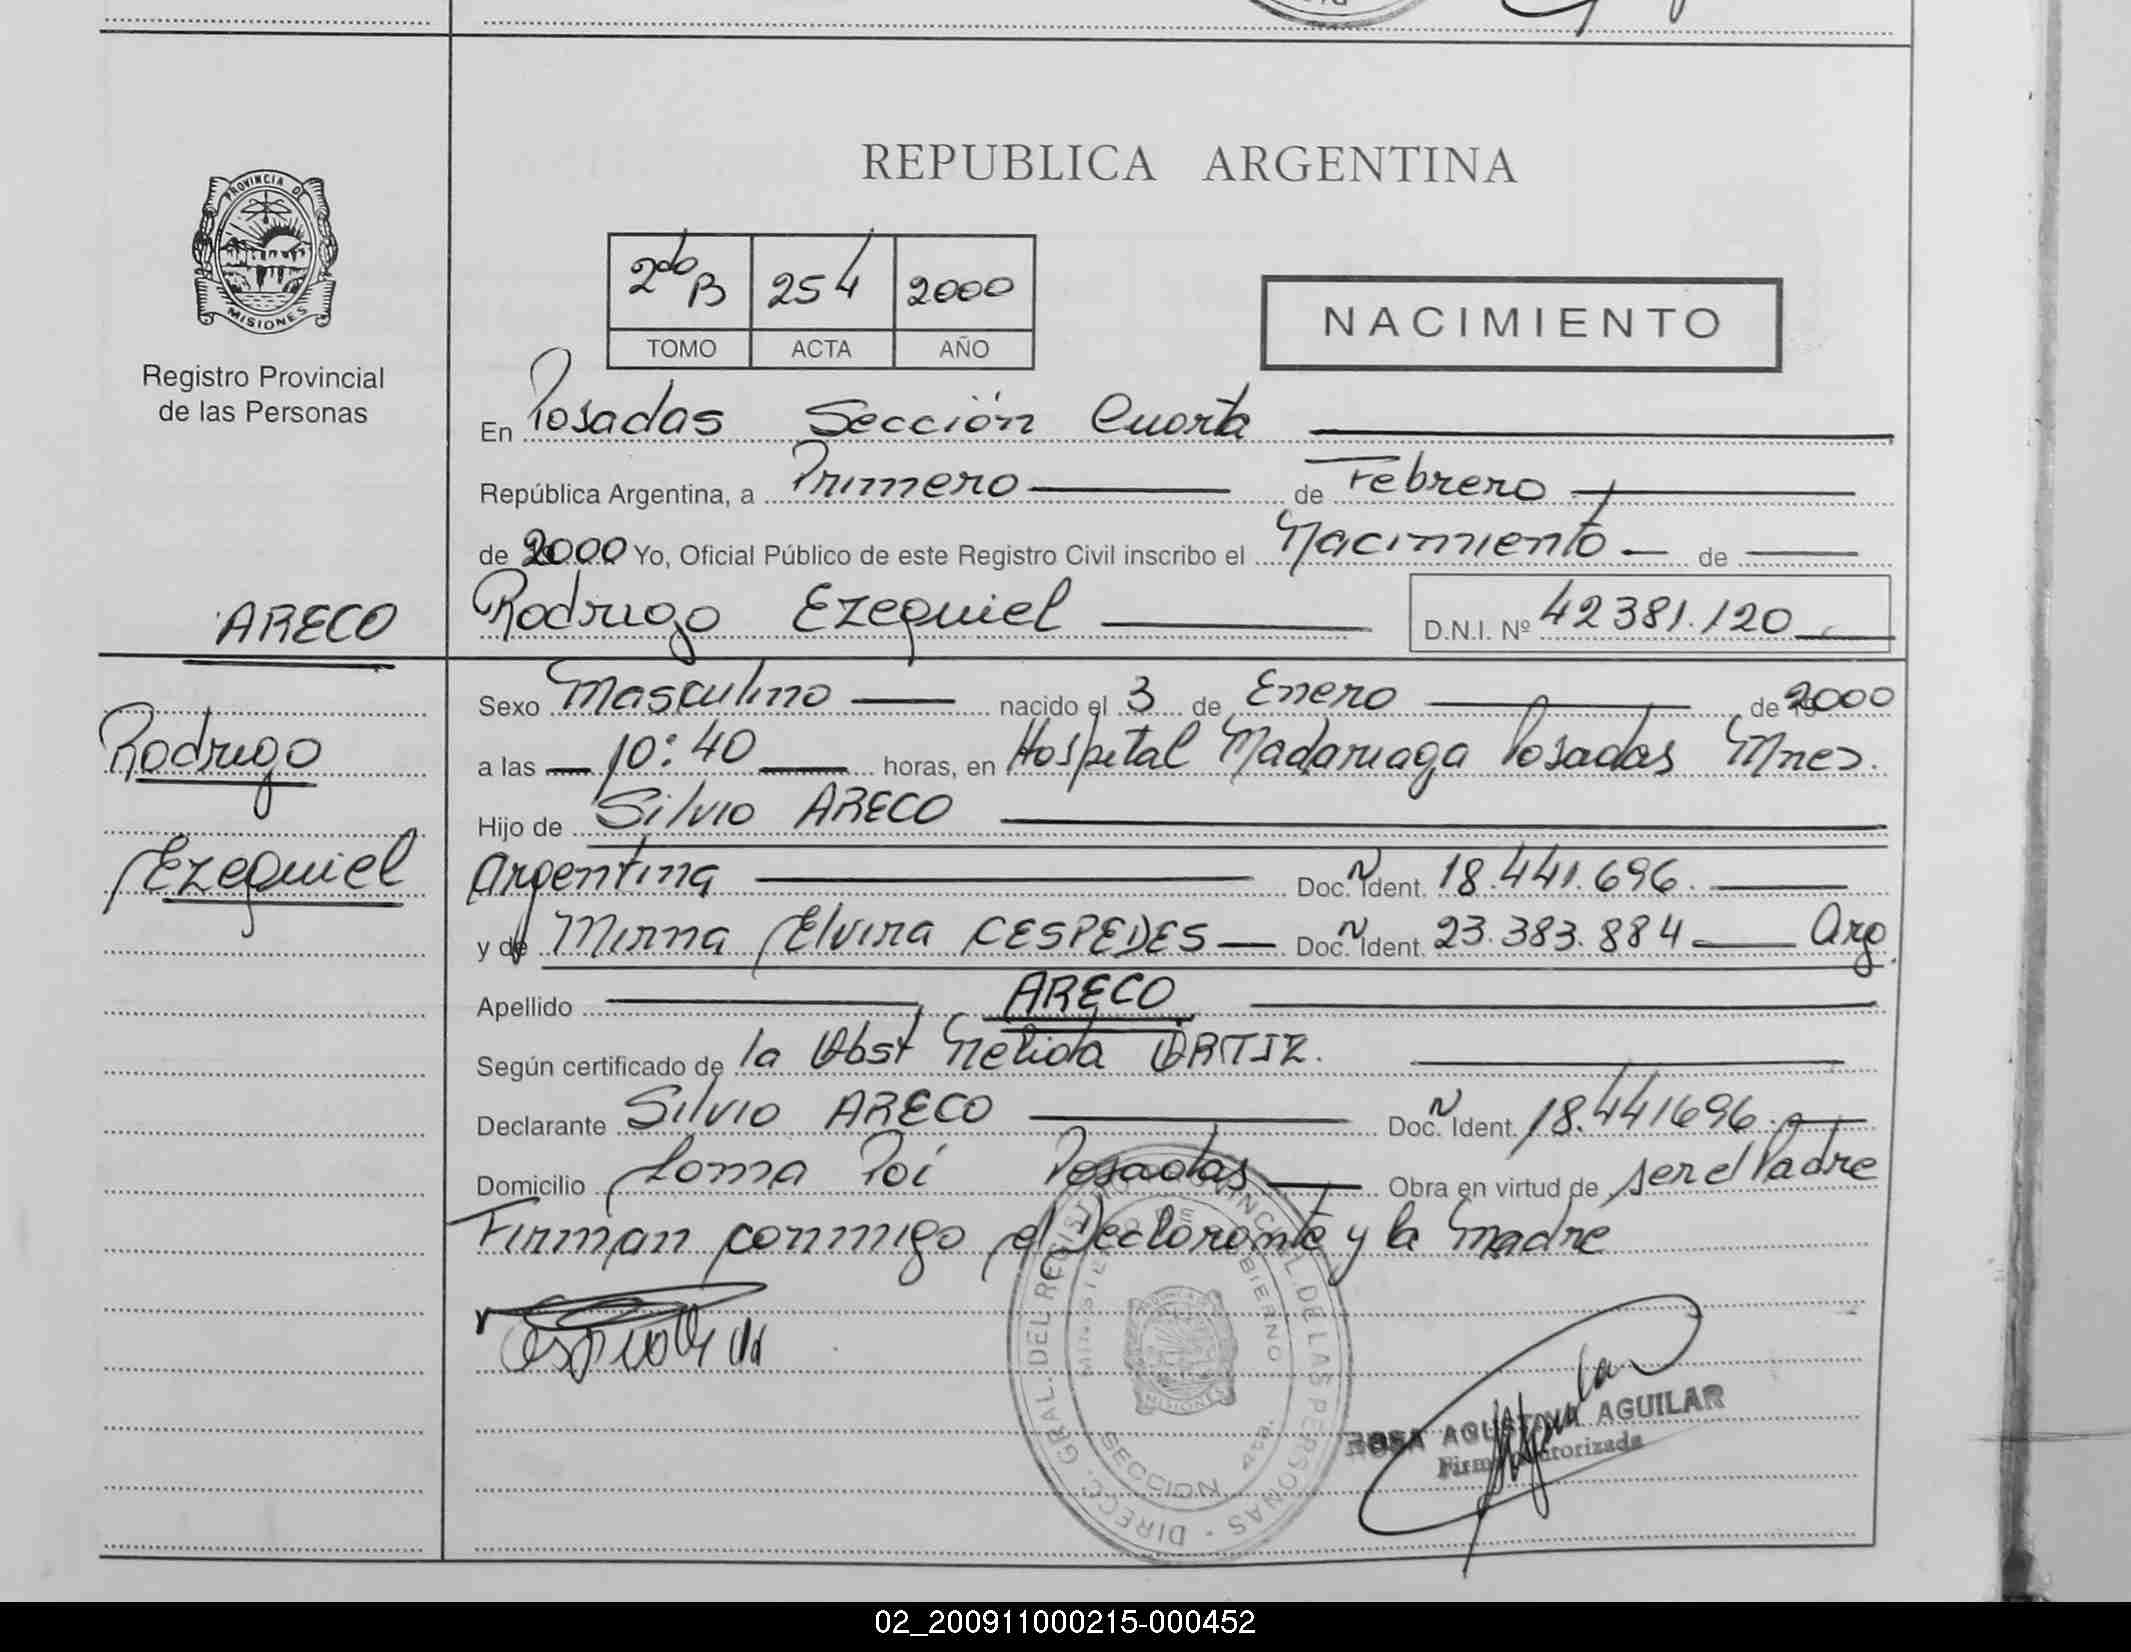 REPUBLICA ARGENTINA
PROVINCIA DE
MISIONES
Registro Provincial
de las Personas
2do B 254 2000
TOMO ACTA AÑO
NACIMIENTO
En Posadas Sección Cuarta
República Argentina, a Primero de Febrero
de 2000 Yo, Oficial Público de este Registro Civil inscribo el Nacimiento de
ARECO
Rodrigo Ezequiel D.N.I. Nº 42381.120
Rodrigo
Ezequiel
Sexo Masculino nacido el 3 de Enero de 2000
a las 10:40 horas, en Hospital Madariaga Posadas Mnes.
Hijo de Silvio ARECO
Argentina Doc. N Ident. 18.441.696.
y de Mirna Elvira CESPEDES Doc. N Ident. 23.383.884 Arg.
Apellido ARECO
Según certificado de la Obst Nelida ORTIZ.
Declarante Silvio ARECO Doc. N Ident. 18.441696.
Domicilio Loma Poi Posadas Obra en virtud de ser el Padre
Firman conmigo el Declarante y la Madre
DIRECC. GRAL. DEL REGISTRO PROVINCIAL DE LAS PERSONAS
MINISTERIO DE GOBIERNO
MISIONES
SECCION 4ta.
ROSA AGUSTINA AGUILAR
Firma Autorizada
02_200911000215-000452